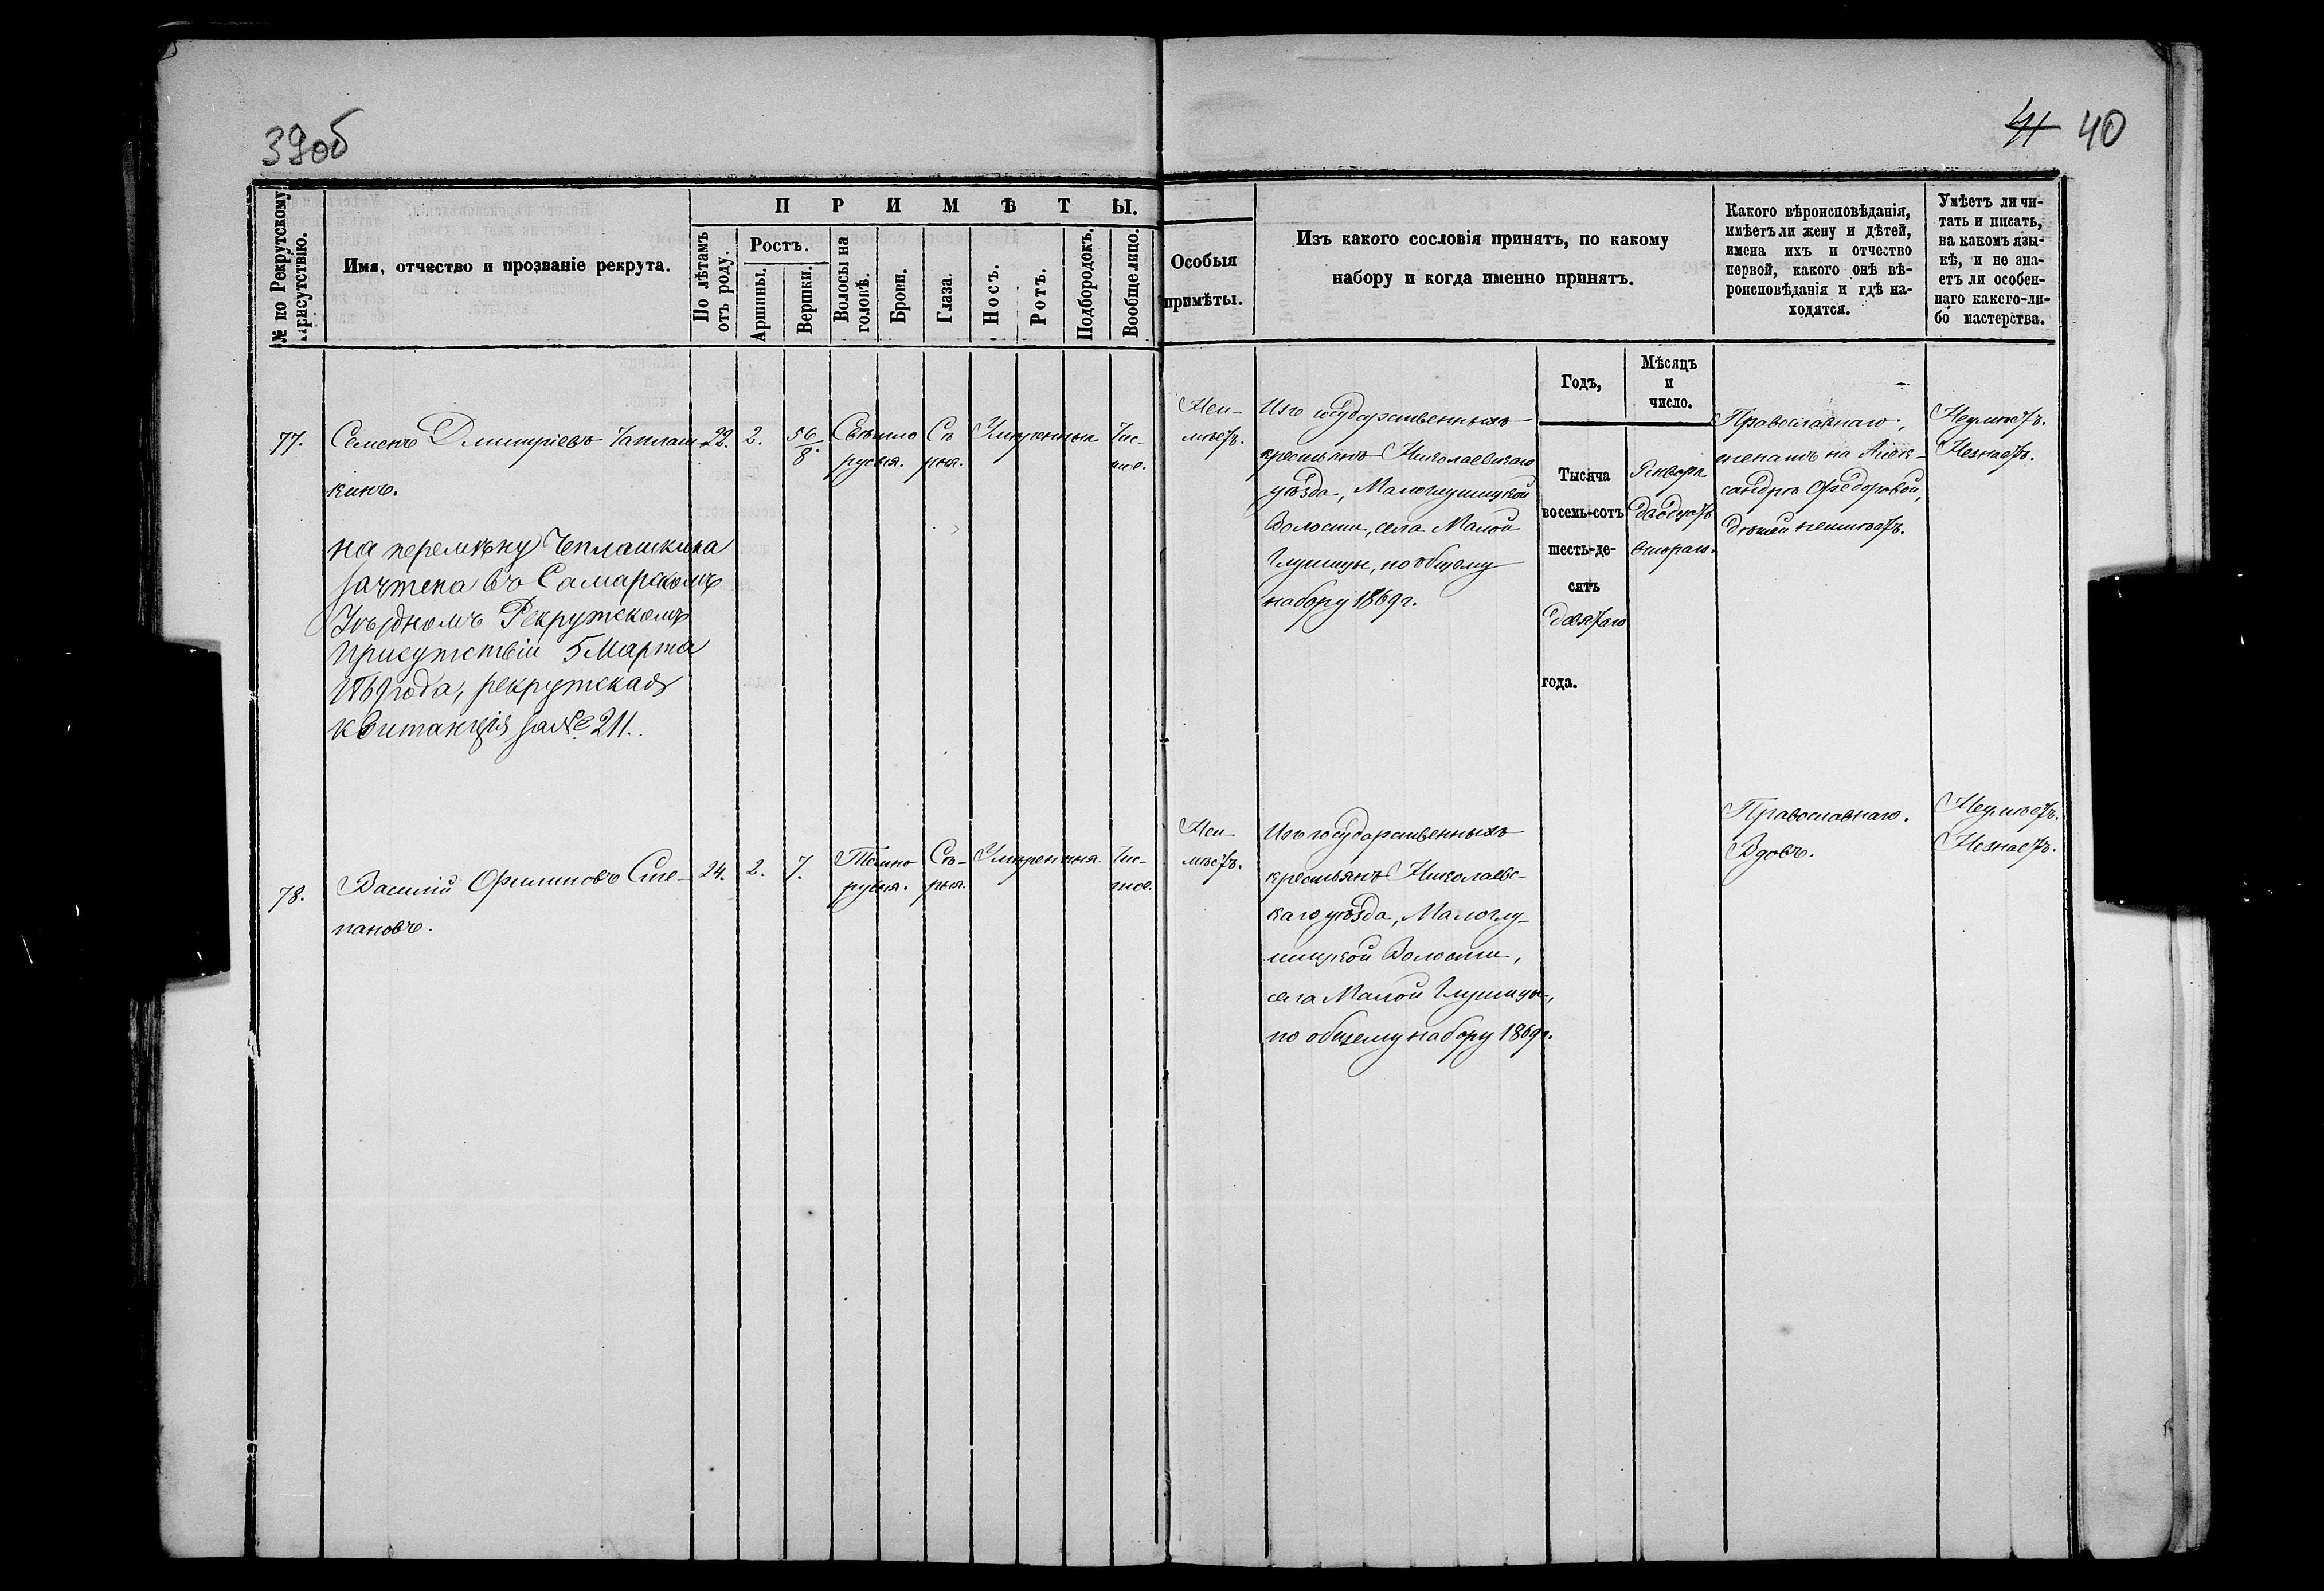 39об
41 40
№ по Рекрутскому присутствію.
Имя, отчество и прозваніе рекрута.
П Р И М Ѣ Т Ы.
По лѣтамъ отъ роду.
Ростъ.
Аршины.
Вершки.
Волосы на головѣ.
Брови.
Глаза.
Носъ.
Ротъ.
Подбородокъ.
Вообще лицо.
Особыя
примѣты.
Изъ какого сословія принятъ, по какому
набору и когда именно принятъ.
Какого вѣроисповѣданія,
имѣетъ ли жену и дѣтей,
имена ихъ и отчество
первой, какого онѣ вѣ-
роисповѣданія и гдѣ на-
ходятся.
Умѣетъ ли чи-
тать и писать,
на какомъ язы-
кѣ, и не зна-
етъ ли особен-
наго какого-ли-
бо мастерства.
Годъ,
Мѣсяцъ
и
число.
77.
Семенъ Дмитріевъ Чаплаш-
кинъ.
на перемѣну Чеплашкина
зачтена въ Самарскомъ
Уѣздномъ Рекрутскомъ
Присутствіи 5 Марта
1869 года, рекрутская
квитанція за № 211.
22.
2.
5 6/8.
Свѣтло
русыя.
Сѣ
рыя.
Умѣренныя
Чис-
тое.
Неи-
мѣетъ.
Изъ государственныхъ
крестьянъ Николаевскаго
уѣзда, Малоглушицкой
Волости, села Малой
Глушицы, по общему
набору 1869 г.
Тысяча
восемь-сотъ
шесть-де-
сять
девятаго
года.
Января
двадцать
втораго.
Православнаго,
женатъ на Алек-
сандрѣ Федоровой,
дѣтей неимѣетъ.
Неумѣетъ.
Незнаетъ.
78.
Василій Филиповъ Сте-
пановъ.
24.
2.
7.
Темно
русыя.
Сѣ-
рыя.
Умѣренныя.
Чис-
тое.
Неи-
мѣетъ.
Изъ государственныхъ
крестьянъ Николаевс-
каго уѣзда, Малоглу-
шицкой Волости,
села Малой Глушицы,
по общему набору 1869 г.
Православнаго.
Вдовъ.
Неумѣетъ.
Незнаетъ.